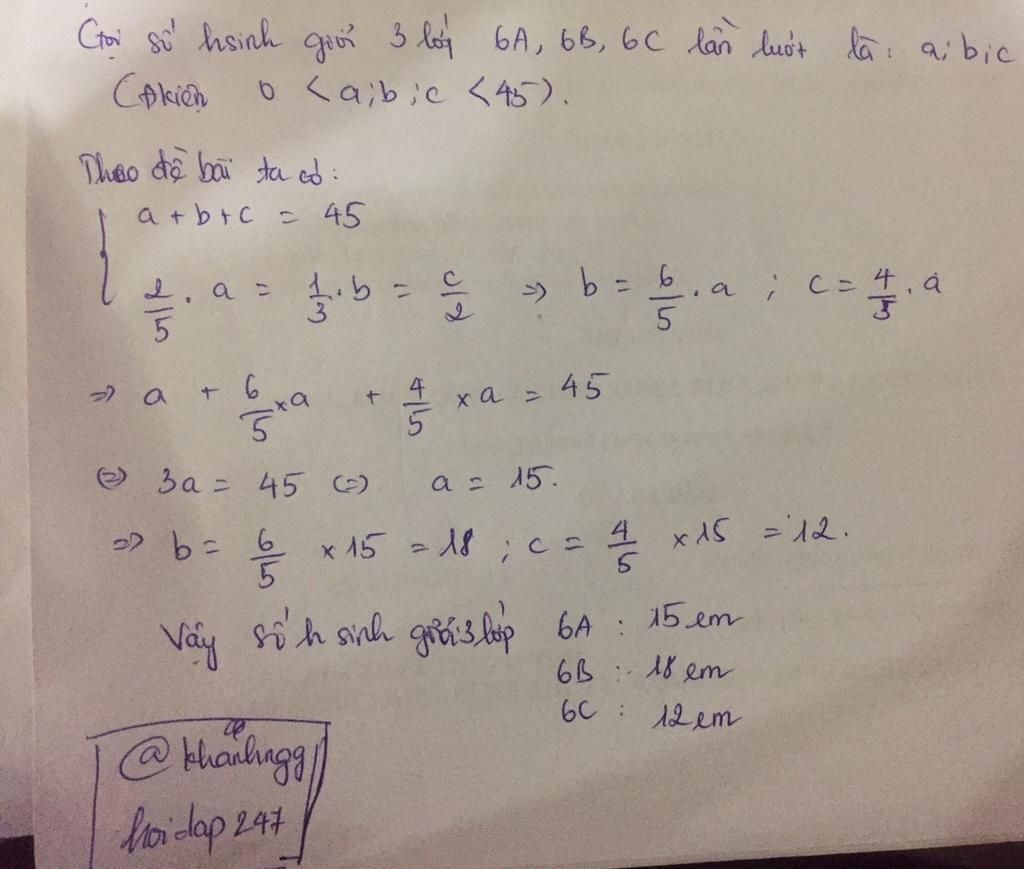 Gọi số hsinh giỏi 3 lớp 6A, 6B, 6C lần lượt là: a; b; c
(Đkiện 0 < a; b; c < 45).
Theo đề bài ta có:
a + b + c = 45
2/5 . a = 1/3 . b = c/2 => b = 6/5 . a ; c = 4/5 . a
=> a + 6/5 x a + 4/5 x a = 45
<=> 3a = 45 <=> a = 15.
=> b = 6/5 x 15 = 18 ; c = 4/5 x 15 = 12.
Vậy số h sinh giỏi 3 lớp 6A : 15 em
6B : 18 em
6C : 12 em
@khanhngg
hoidap247